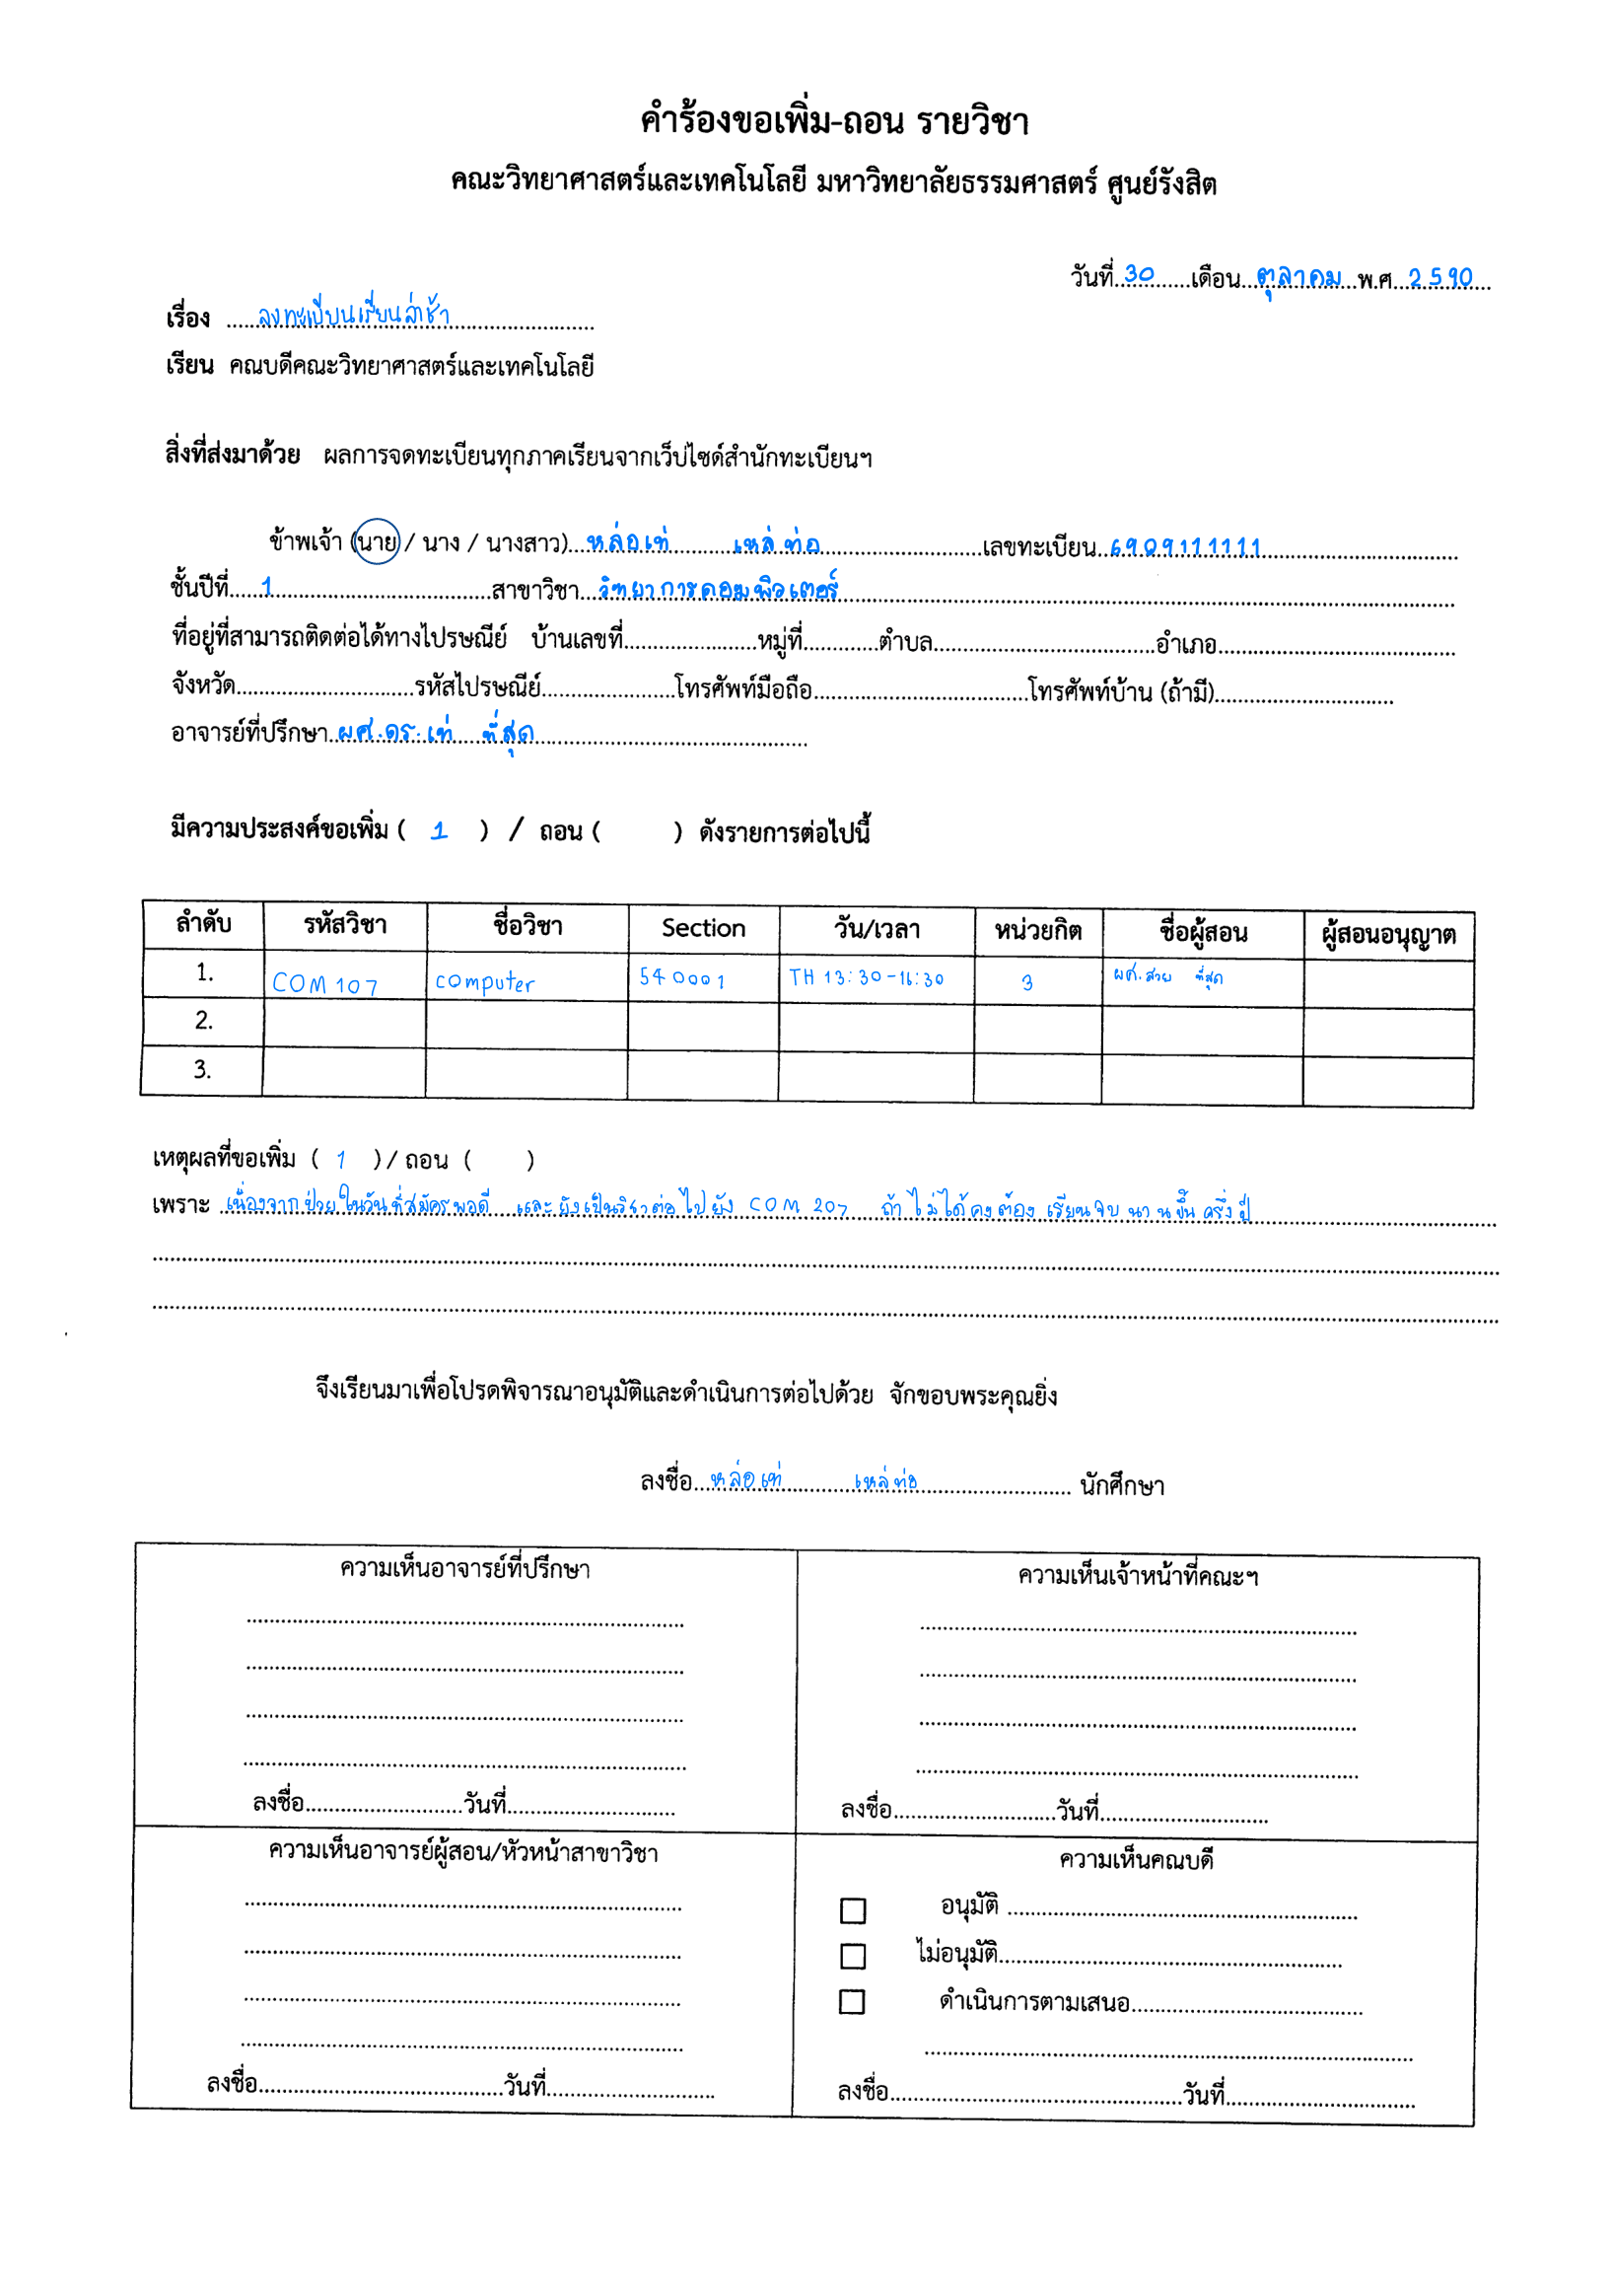 คำร้องขอเพิ่ม-ถอน รายวิชา
คณะวิทยาศาสตร์และเทคโนโลยี มหาวิทยาลัยธรรมศาสตร์ ศูนย์รังสิต
วันที่ 30 เดือน ตุลาคม พ.ศ. 2590
เรื่อง ลงทะเบียนเรียนล่าช้า
เรียน คณบดีคณะวิทยาศาสตร์และเทคโนโลยี
สิ่งที่ส่งมาด้วย ผลการจดทะเบียนทุกภาคเรียนจากเว็บไซด์สำนักทะเบียนฯ
ข้าพเจ้า (นาย / นาง / นางสาว) หล่อเท่ เหล่ ท่อ เลขทะเบียน 6909111111
ชั้นปีที่ 1 สาขาวิชา วิทยาการคอมพิวเตอร์
ที่อยู่ที่สามารถติดต่อได้ทางไปรษณีย์ บ้านเลขที่ หมู่ที่ ตำบล อำเภอ
จังหวัด รหัสไปรษณีย์ โทรศัพท์มือถือ โทรศัพท์บ้าน (ถ้ามี)
อาจารย์ที่ปรึกษา ผศ.ดร.เท่ ที่สุด
มีความประสงค์ขอเพิ่ม ( 1 ) / ถอน ( ) ดังรายการต่อไปนี้
ลำดับ รหัสวิชา ชื่อวิชา Section วัน/เวลา หน่วยกิต ชื่อผู้สอน ผู้สอนอนุญาต
1. COM 107 computer 540001 TH 13:30-16:30 3 ผศ.สวย ที่สุด
2.
3.
เหตุผลที่ขอเพิ่ม ( 1 ) / ถอน ( )
เพราะ เนื่องจากป่วยในวันที่สมัครพอดี และยังเป็นวิชาต่อไปยัง COM 207 ถ้าไม่ได้คงต้องเรียนจบนานขึ้นครึ่งปี
จึงเรียนมาเพื่อโปรดพิจารณาอนุมัติและดำเนินการต่อไปด้วย จักขอบพระคุณยิ่ง
ลงชื่อ หล่อเท่ เหล่ ท่อ นักศึกษา
ความเห็นอาจารย์ที่ปรึกษา
ลงชื่อ วันที่
ความเห็นเจ้าหน้าที่คณะฯ
ลงชื่อ วันที่
ความเห็นอาจารย์ผู้สอน/หัวหน้าสาขาวิชา
ลงชื่อ วันที่
ความเห็นคณบดี
อนุมัติ
ไม่อนุมัติ
ดำเนินการตามเสนอ
ลงชื่อ วันที่